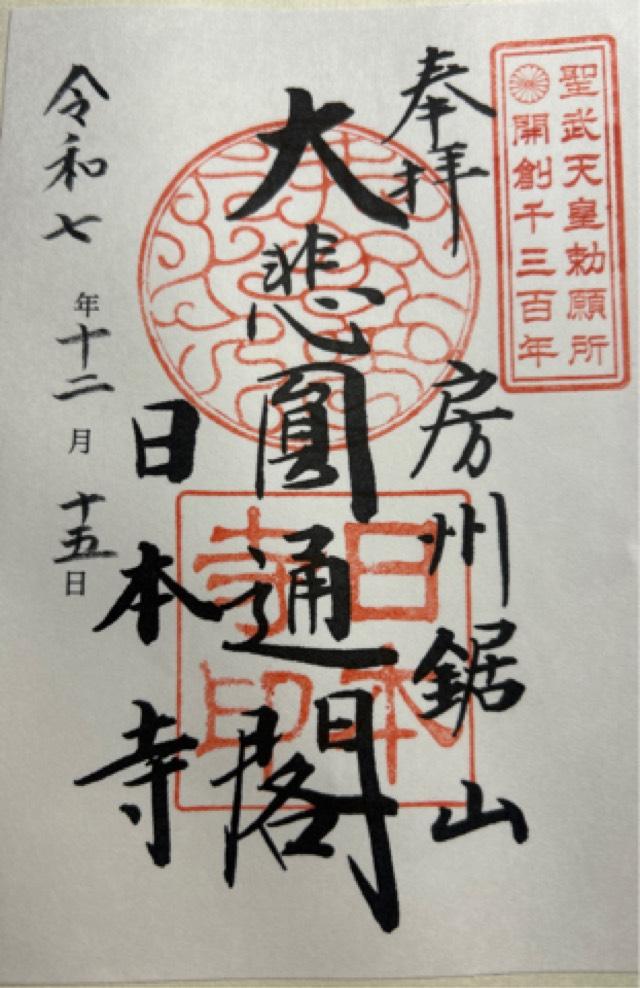 聖武天皇勅願所
開創千三百年
奉拝
房州鋸山
大悲圓通閣
日本寺
日本寺印
令和七年十二月十五日